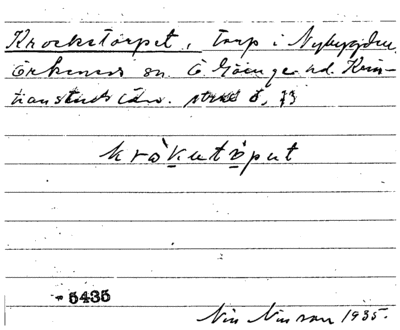 Krocketorpet, Torp i Nybygden,
Örkeneds sn. Ö. Göinge hd. Kris-
tianstads län.
kròkatöput
5435
Nils Nilsson 1935.